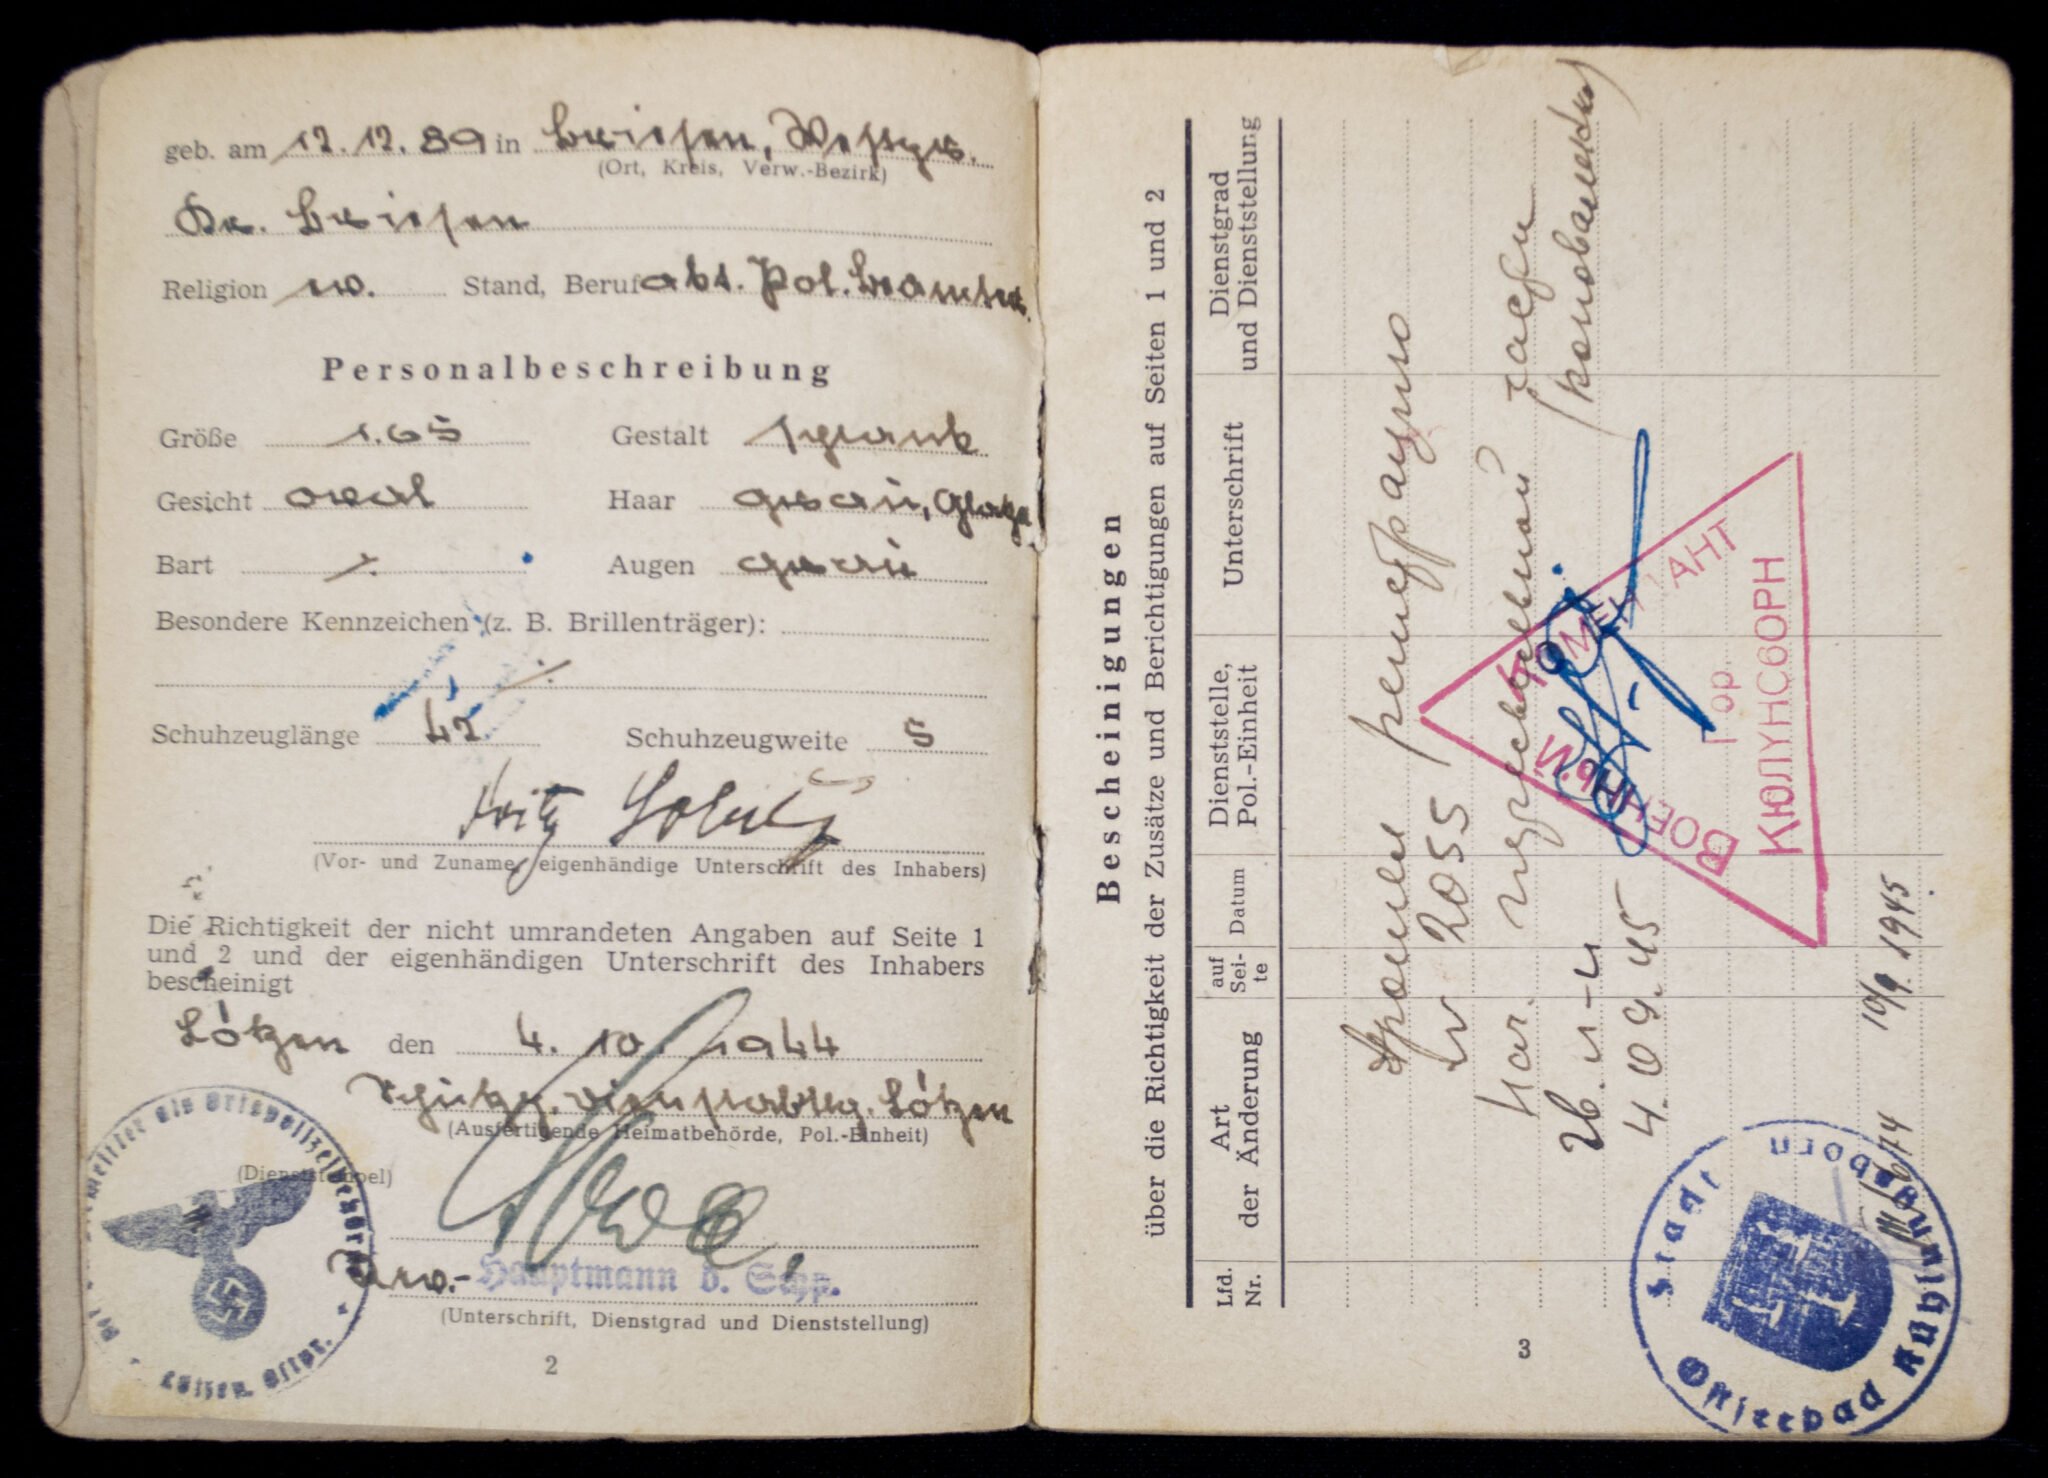 geb. am 12.12.89 in Briesen, Westpr.
(Ort, Kreis, Verw.-Bezirk)
Kr. Briesen
Religion ev. Stand, Beruf abt. Pol. Beamter
Personalbeschreibung
Größe 1.65 Gestalt schlank
Gesicht oval Haar grau, Glatze
Bart ./. Augen grau
Besondere Kennzeichen (z. B. Brillenträger):
./.
Schuhzeuglänge 42 Schuhzeugweite 5
Fritz
(Vor- und Zuname, eigenhändige Unterschrift des Inhabers)
Die Richtigkeit der nicht umrandeten Angaben auf Seite 1
und 2 und der eigenhändigen Unterschrift des Inhabers
bescheinigt
Lötzen den 4. 10. 1944
Schutzp. Dienstabtlg. Lötzen
(Ausfertigende Heimatbehörde, Pol.-Einheit)
(Dienststempel)
als Ortspolizeibehörde
Lötzen Ostpr.
Hauptmann d. Schp.
(Unterschrift, Dienstgrad und Dienststellung)
2
Bescheinigungen
über die Richtigkeit der Zusätze und Berichtigungen auf Seiten 1 und 2
Lfd. Nr.
Art der Änderung
auf Sei- te
Datum
Dienststelle, Pol.-Einheit
Unterschrift
Dienstgrad und Dienststellung
№ 2055
Нач.
4.09.45
ВОЕННЫЙ КОМЕНДАНТ
Гор.
КЮЛУНСБОРН
10/9. 1945.
Stadt
Ostseebad Kühlungsborn
3